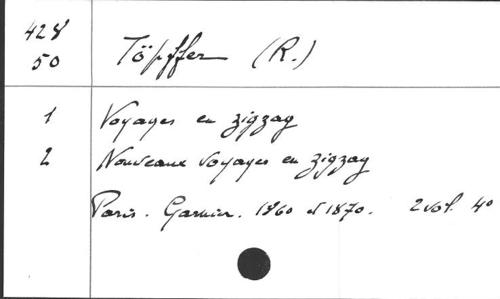 428 Töpffer (R.)
50
1 Voyages en zigzag
2 Nouveaux voyages en zigzag
Paris. Garnier. 1860 et 1870. 2 vol. 4º